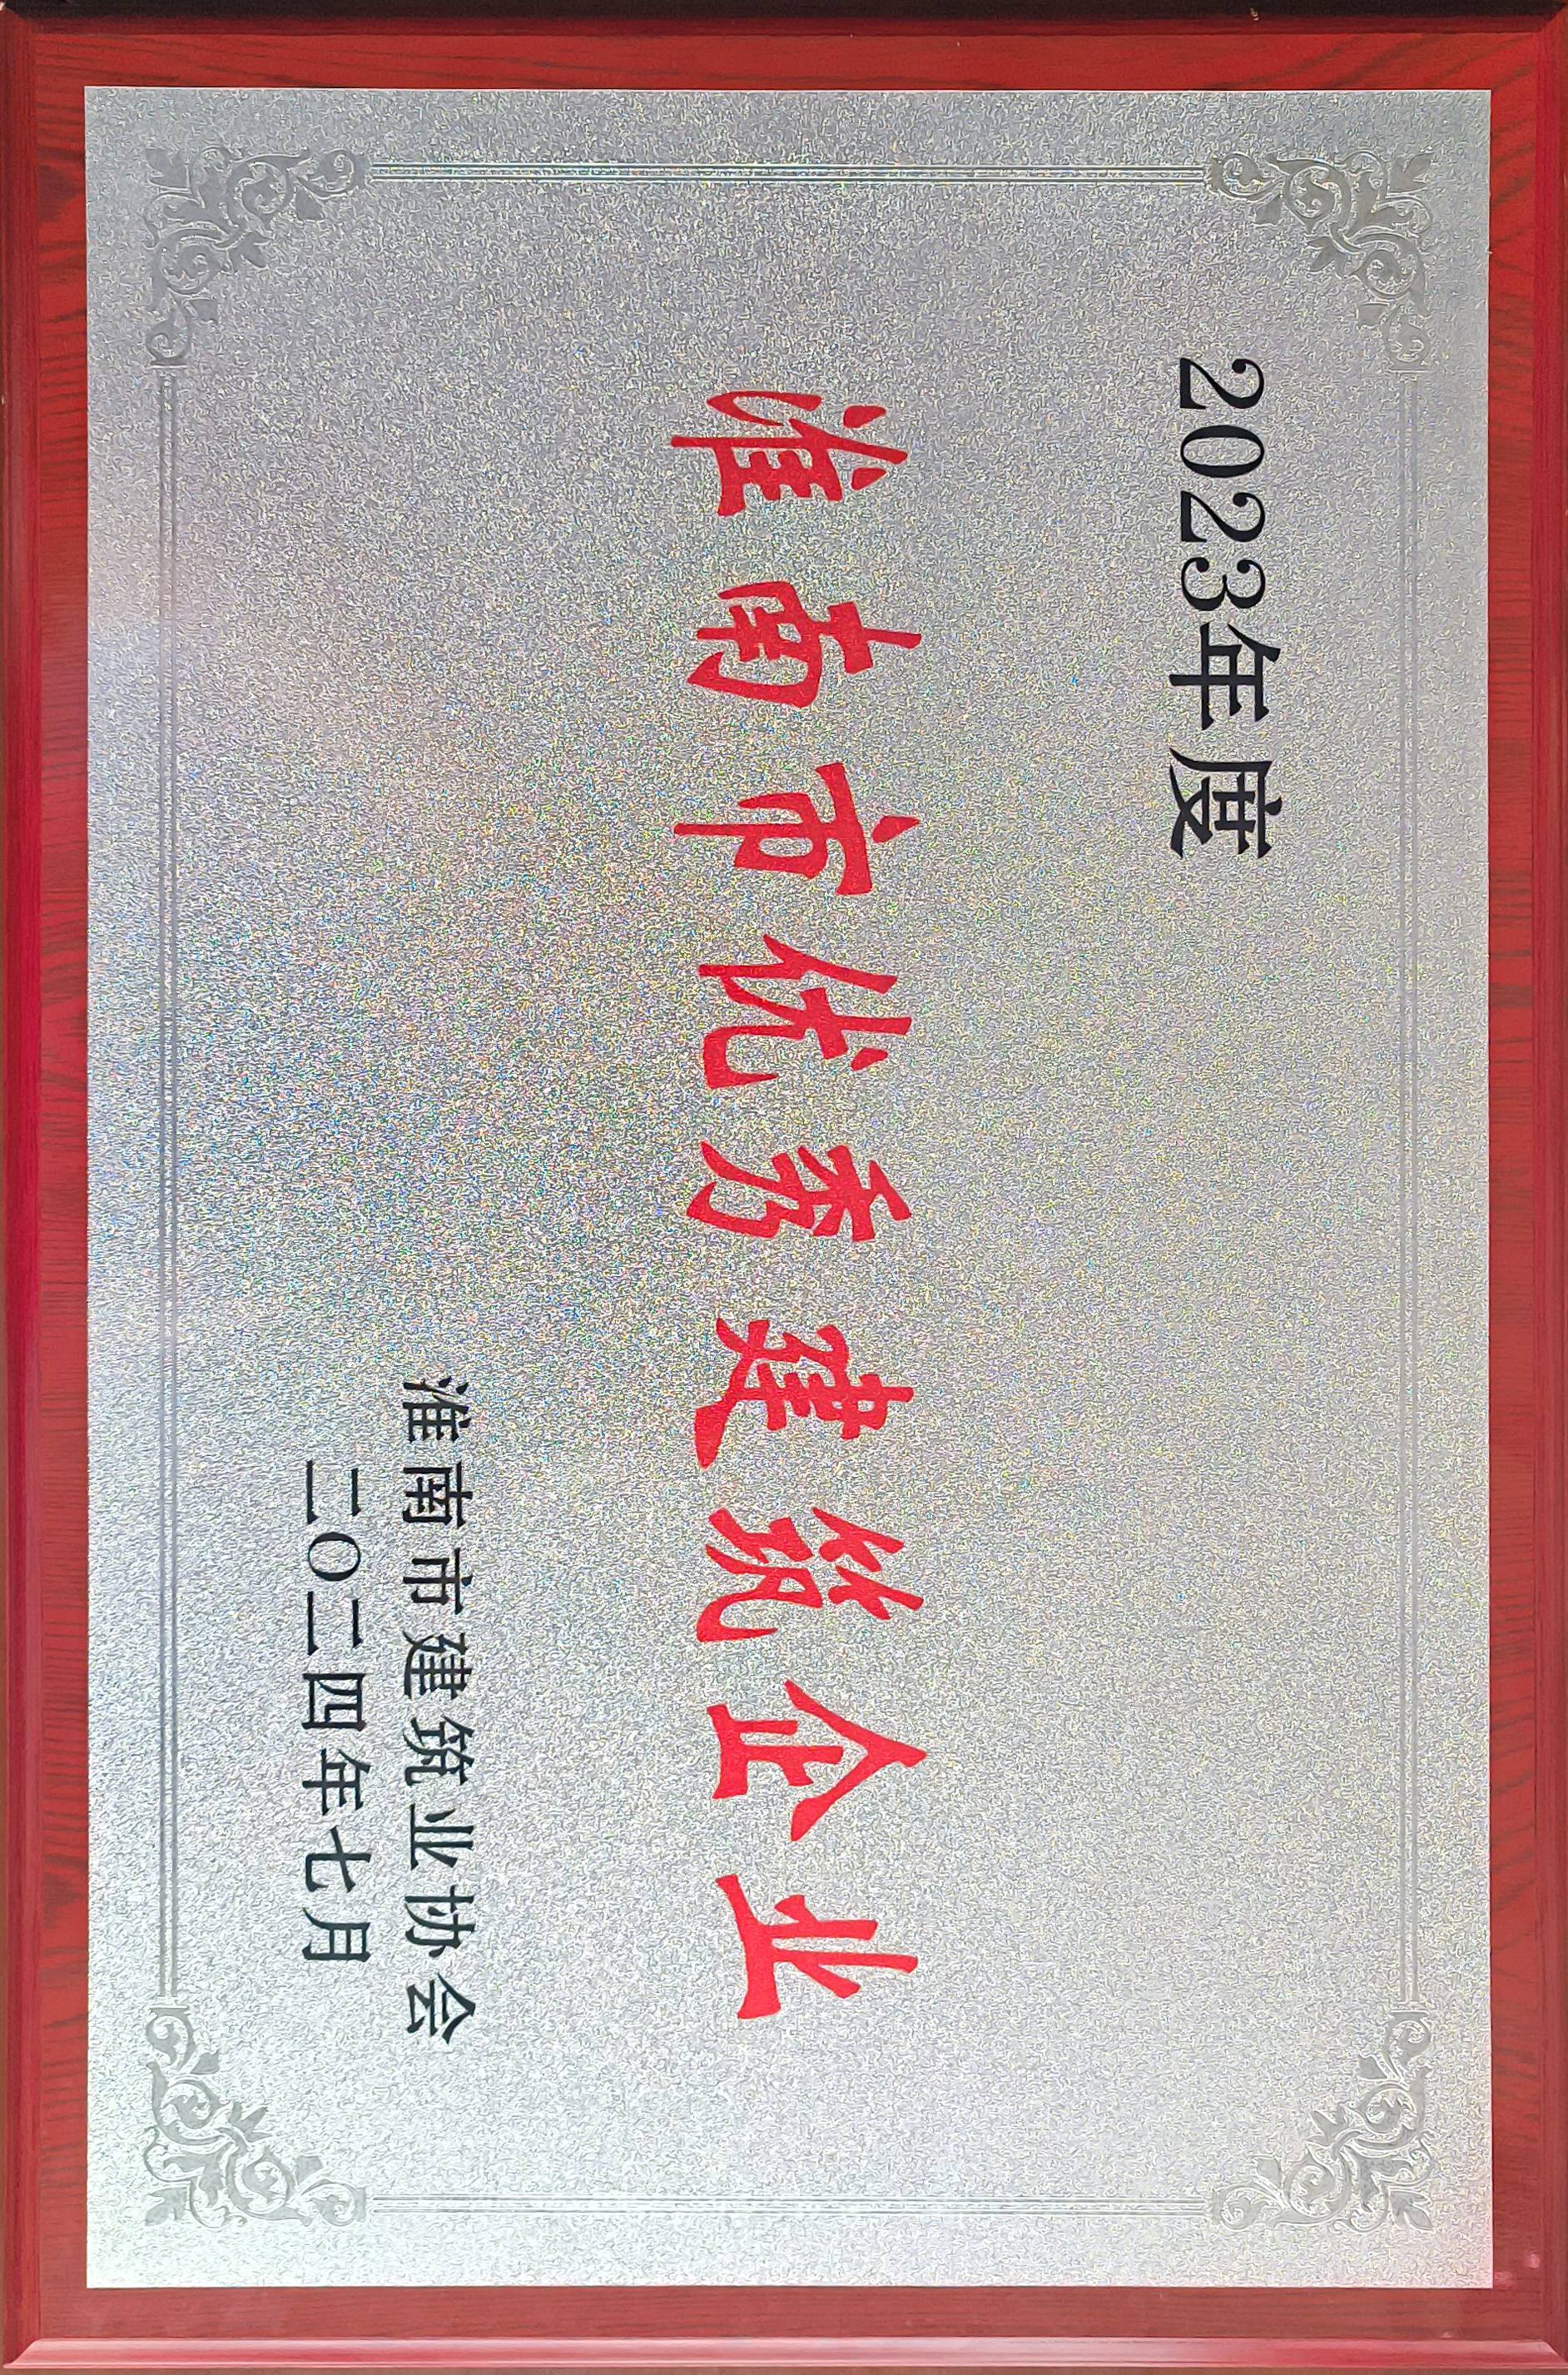 2023年度
淮南市优秀建筑企业
淮南市建筑业协会
二〇二四年七月